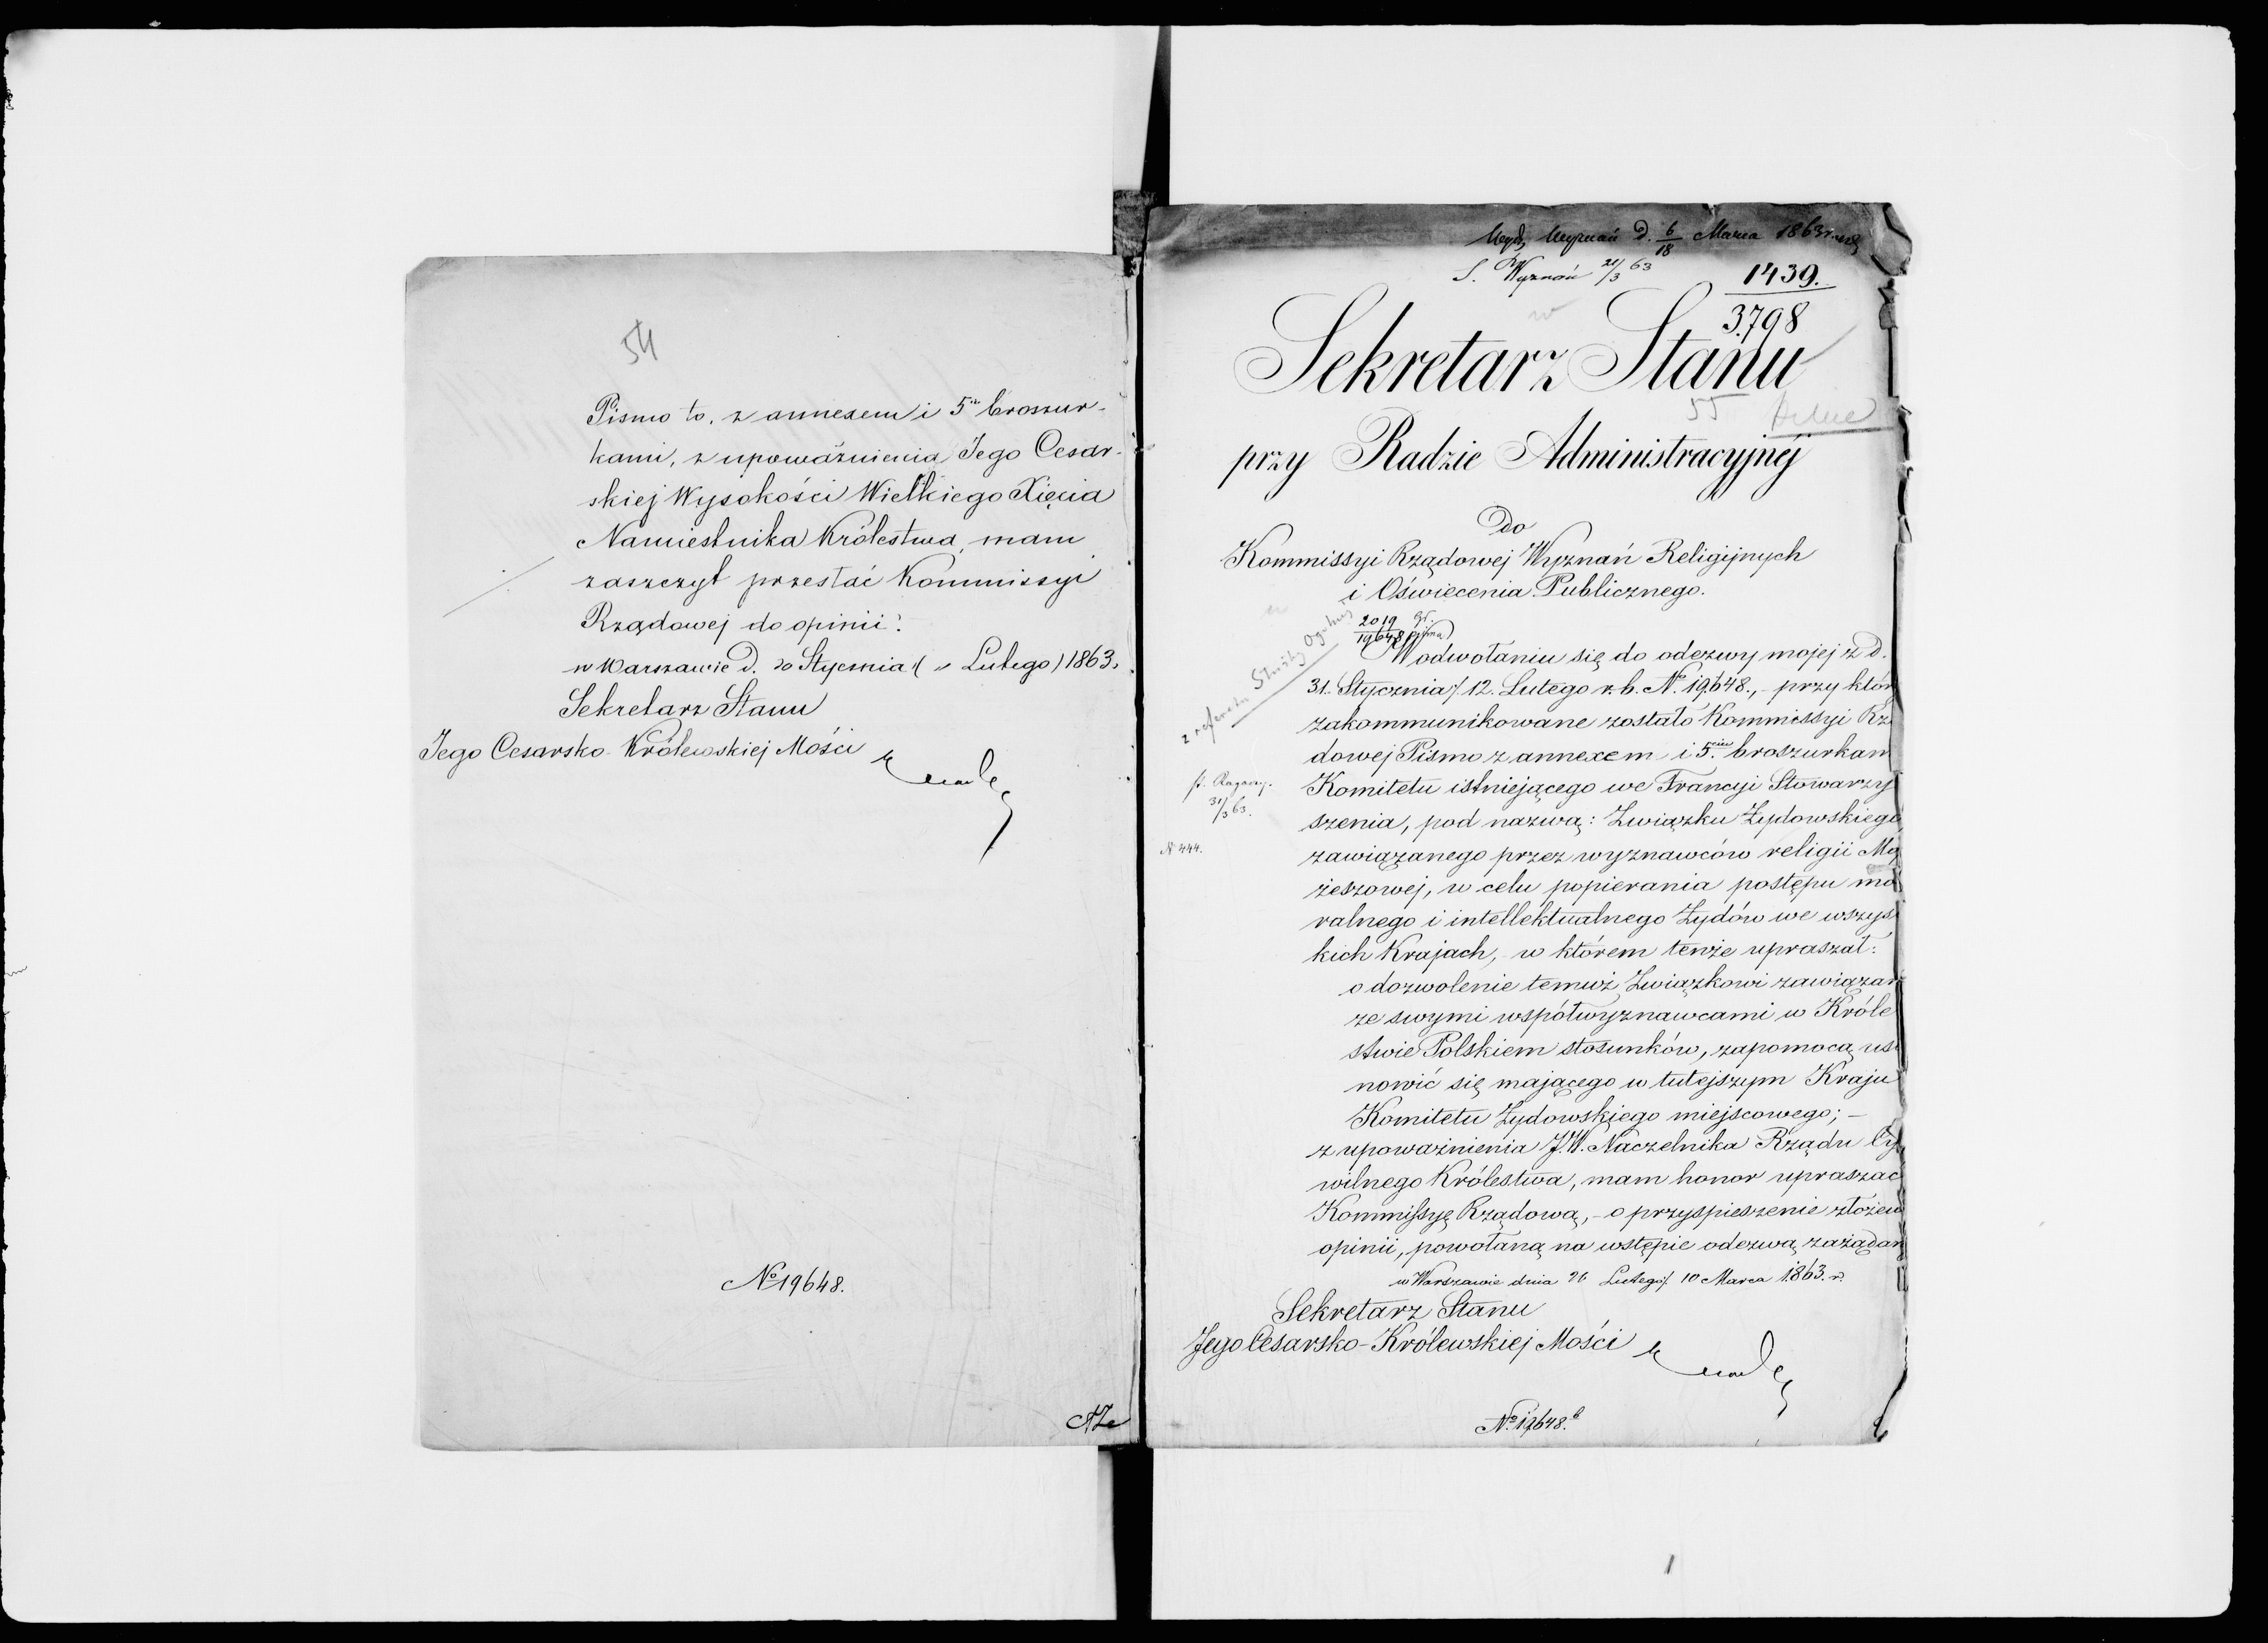 54
Pismo to, z annexem i 5iu broszur-
kami, z upoważnienia Jego Cesar-
skiej Wysokości Wielkiego Xięcia
Namiestnika Królestwa, mam
zaszczyt przesłać Kommissyi
Rządowej do opinii.
w Warszawie D. Stycznia ( Lutego) 1863.
Sekretarz Stanu
Jego Cesarsko-Królewskiej Mości
No 19648.
Wyznań D. 6/18 Marca 1863 r.
Wyznań 21/3 63
1439.
3798
Sekretarz Stanu
55
przy Radzie Administracyjnéj
Do
Kommissyi Rządowej Wyznań Religijnych
i Oświecenia Publicznego.
2019
19648
W odwołaniu się do odezwy mojej z D.
31. Stycznia/12. Lutego r. b. No 19,648., przy któr
zakommunikowane zostało Kommissyi Rzą
dowej Pismo z annexem i 5ciu broszurkam
Komitetu istniejącego we Francyi Stowarzy
31/3 63.
szenia, pod nazwą: Związku Żydowskiego
N 444.
zawiązanego przez wyznawców religii Moj
żeszowej, w celu popierania postępu mo
ralnego i intellektualnego Żydów we wszyst
kich Krajach, w którem tenże upraszał:
o dozwolenie temuż Związkowi zawiązan
ze swymi współwyznawcami w Króle
stwie Polskiem stosunków, zapomocą usta
nowić się mającego w tutejszym Kraju
Komitetu Żydowskiego miejscowego; –
z upoważnienia J.W. Naczelnika Rządu Cy
wilnego Królestwa, mam honor upraszać
Kommissyę Rządową, – o przyspieszenie złożeni
opinii, powołaną na wstępie odezwą zażądan
w Warszawie dnia 26 Lutego/10 Marca 1863. r.
Sekretarz Stanu
Jego Cesarsko-Królewskiej Mości
No 19,648.b